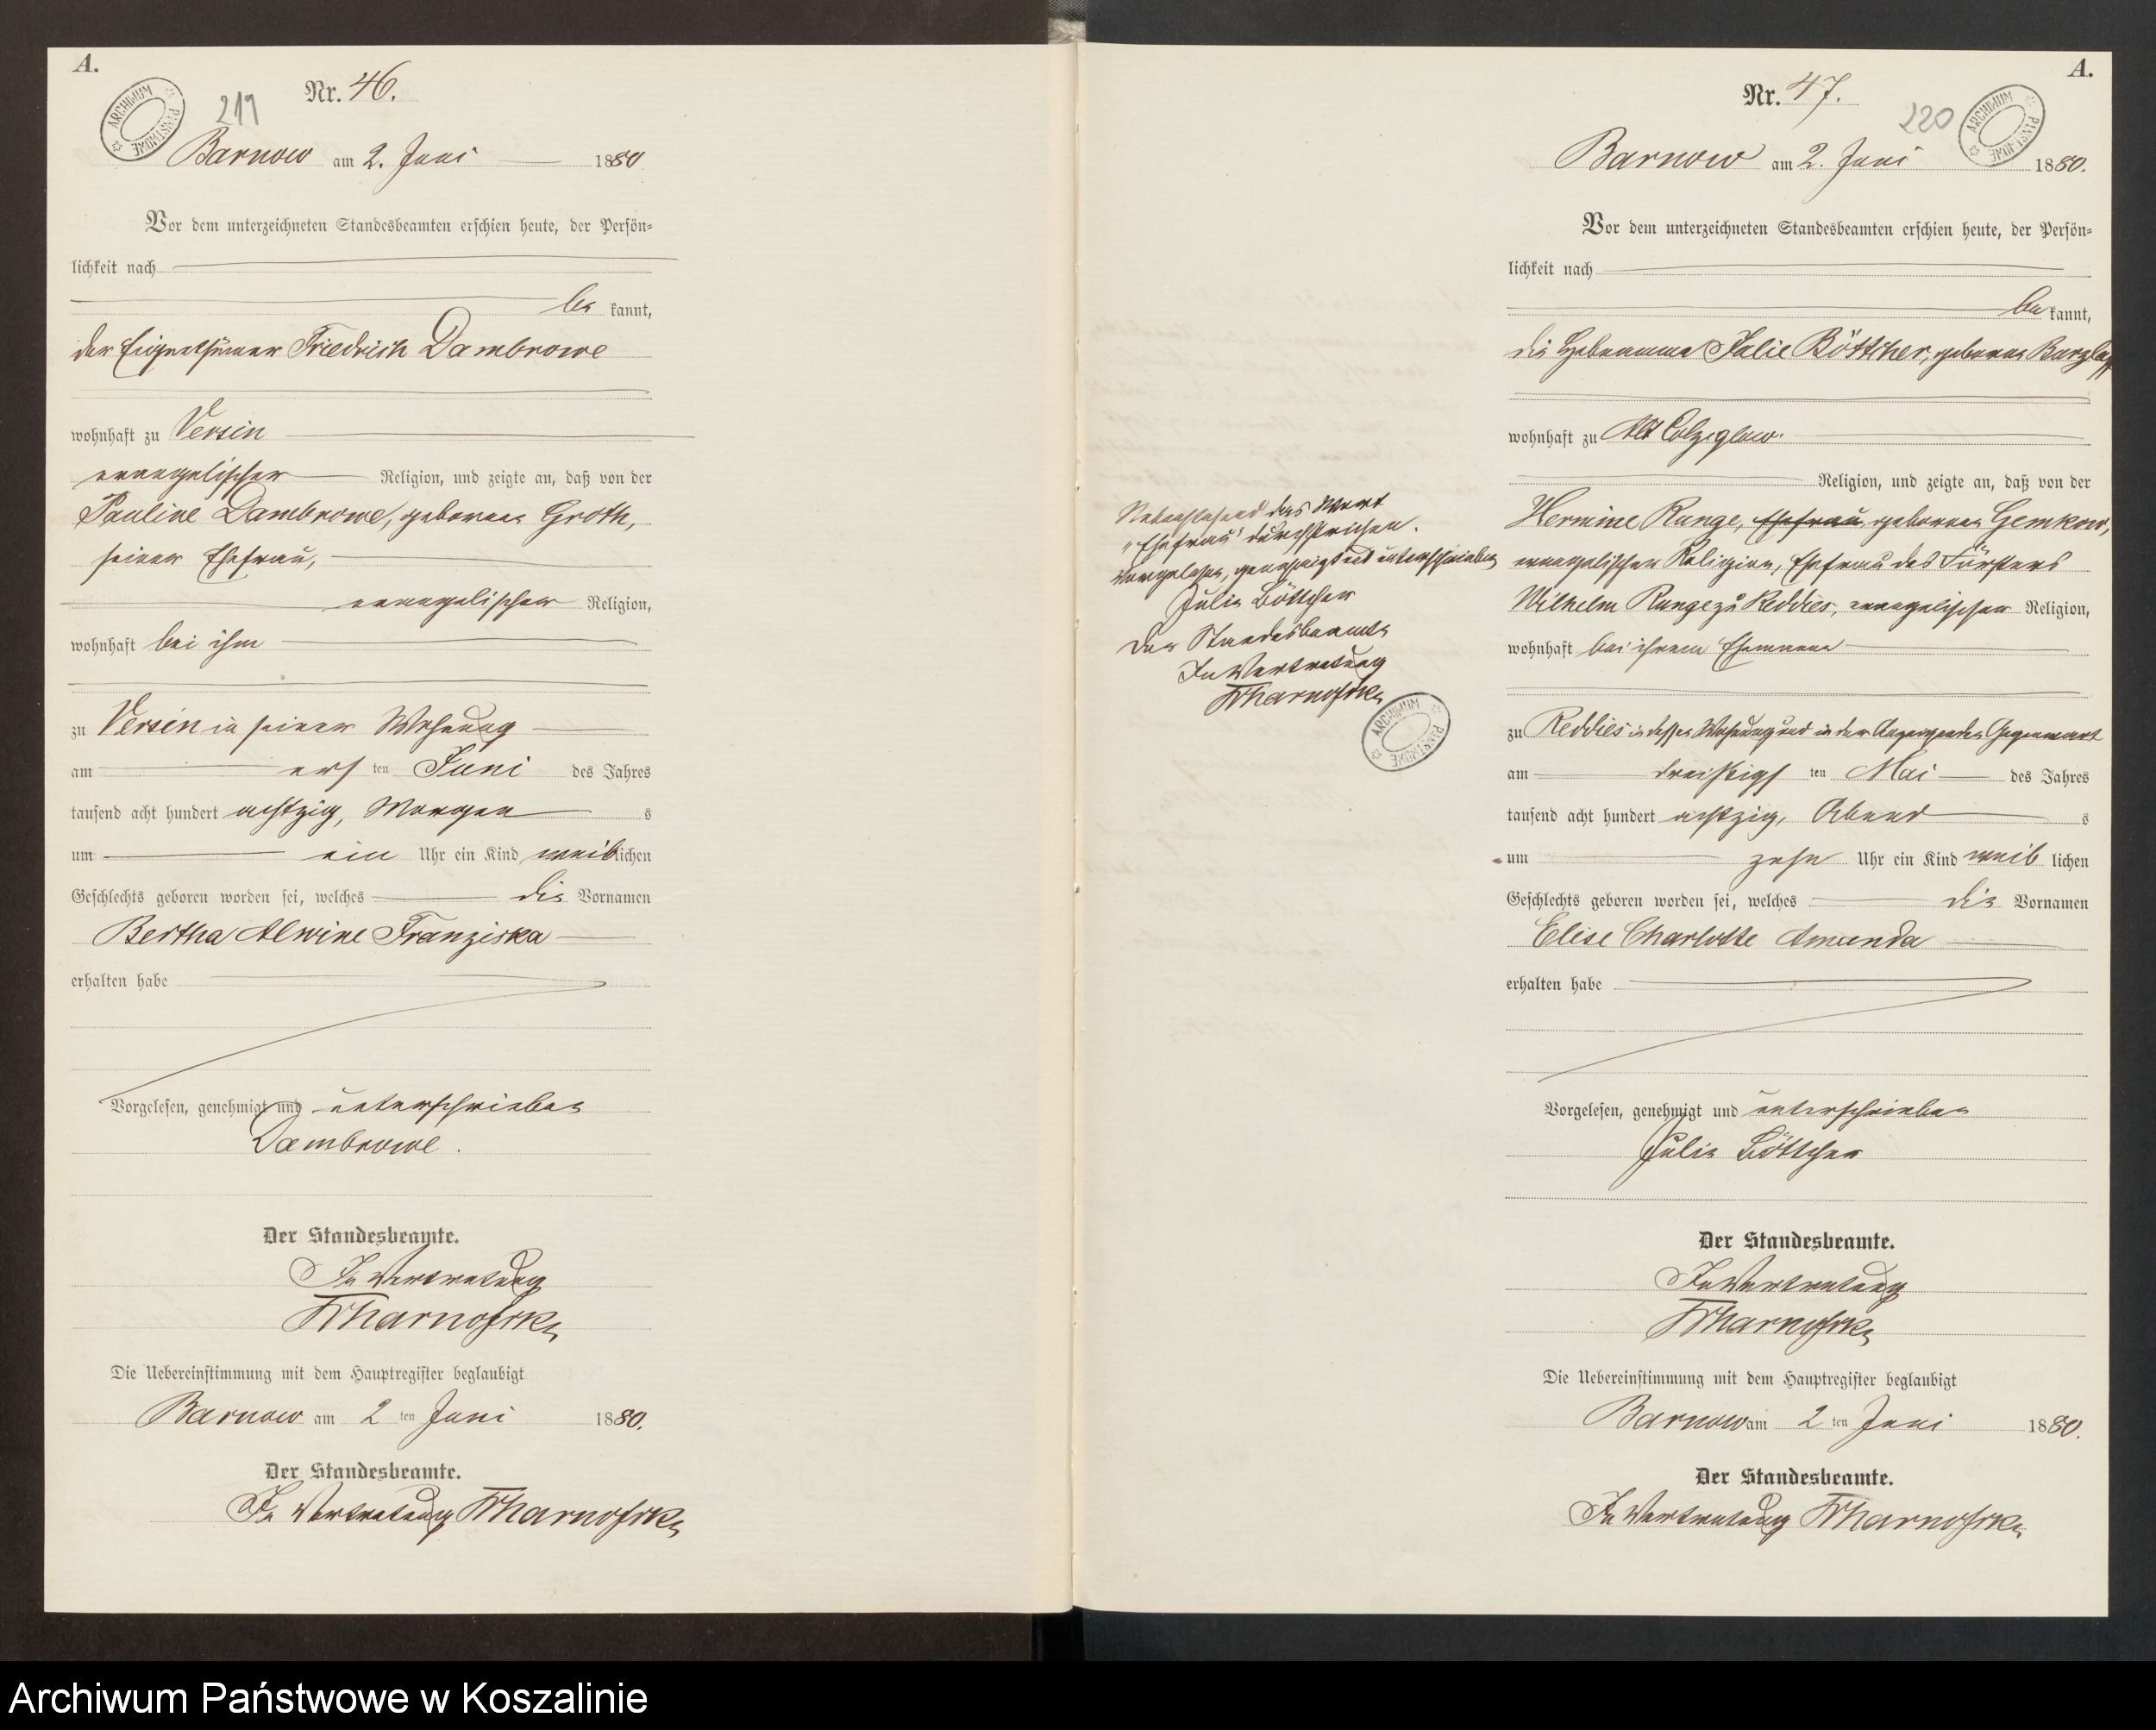 A.
ARCHIWUM PAŃSTWOWE
219
Nr. 46.
Barnow am 2. Juni 1880
Vor dem unterzeichneten Standesbeamten erschien heute, der Persön=
lichkeit nach
be kannt,
der Eigenthümer Friedrich Dambrowe
wohnhaft zu Versin
evangelischer Religion, und zeigte an, daß von der
Pauline Dambrowe, geborenen Groth,
seiner Ehefrau,
evangelischer Religion,
wohnhaft bei ihm
zu Versin in seiner Wohnung
am ers ten Juni des Jahres
tausend acht hundert achtzig, Morgen s
um ein Uhr ein Kind weiblichen
Geschlechts geboren worden sei, welches die Vornamen
Bertha Alwine Franziska
erhalten habe
Vorgelesen, genehmigt und unterschrieben
Dambrowe.
Der Standesbeamte.
In Vertretung
Die Uebereinstimmung mit dem Hauptregister beglaubigt
Barnow am 2 ten Juni 1880.
Der Standesbeamte.
In Vertretung
Nebenstehend das Wort
„Ehefrau" durchstrichen.
Vorgelesen, genehmigt und unterschrieben
Julie Böttcher
Der Standesbeamte
In Vertretung
ARCHIWUM PAŃSTWOWE
A.
Nr. 47.
220
ARCHIWUM PAŃSTWOWE
Barnow am 2. Juni 1880.
Vor dem unterzeichneten Standesbeamten erschien heute, der Persön=
lichkeit nach
be kannt,
die Hebeamme Julie Böttcher, geborene
wohnhaft zu Alt Colziglow.
Religion, und zeigte an, daß von der
Hermine Runge, Ehefrau, geborenen Gemkow,
evangelischer Religion, Ehefrau des Försters
Wilhelm Runge zu Reddies, evangelischer Religion,
wohnhaft bei ihrem Ehemanne
zu Reddies in dessen Wohnung und in der Anzeigenden Gegenwart
am dreißigs ten Mai des Jahres
tausend acht hundert achtzig, Abend s
um zehn Uhr ein Kind weib lichen
Geschlechts geboren worden sei, welches die Vornamen
Elise Charlotte Amanda
erhalten habe
Vorgelesen, genehmigt und unterschrieben
Julie Böttcher
Der Standesbeamte.
In Vertretung
Die Uebereinstimmung mit dem Hauptregister beglaubigt
Barnow am 2 ten Juni 1880.
Der Standesbeamte.
In Vertretung
Archiwum Państwowe w Koszalinie